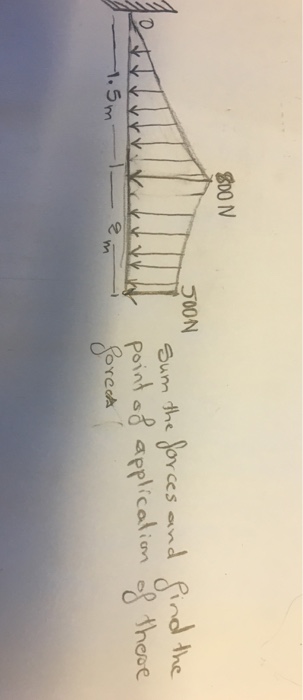 800 N
500N
O
1.5m
2m
Sum the forces and find the
point of application of these
forces!